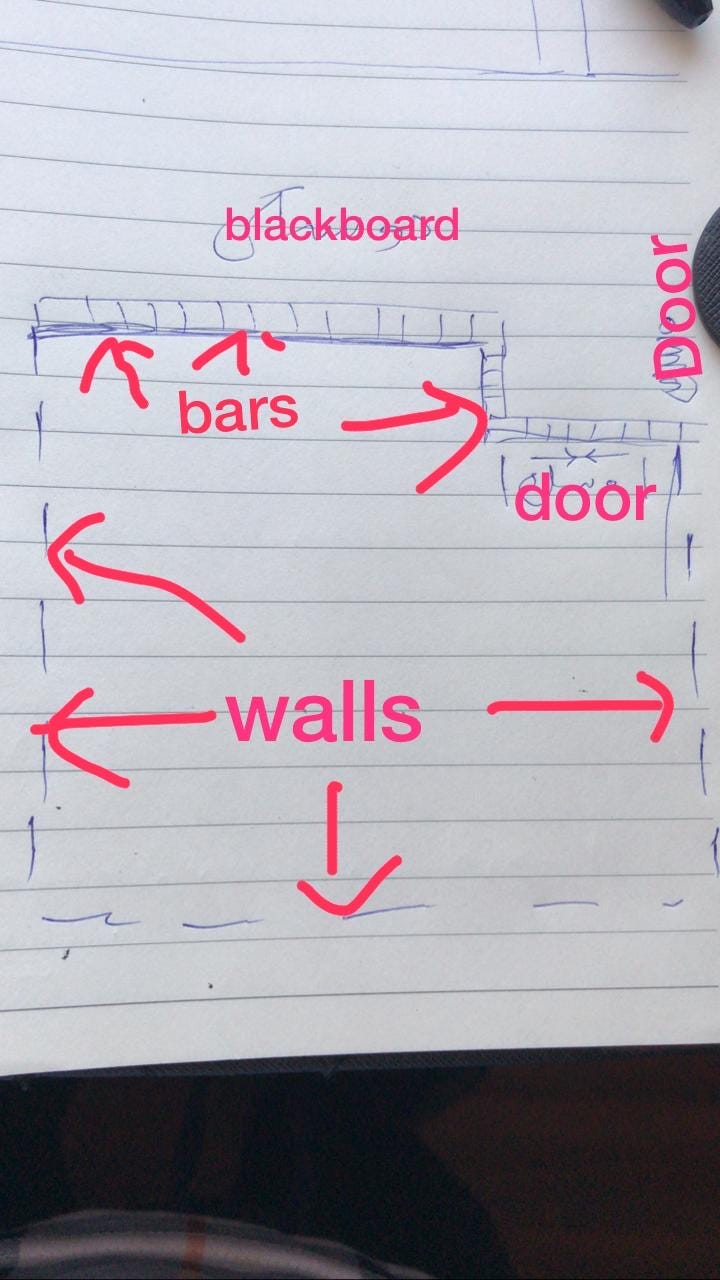 blackboard
Door
bars
door
walls